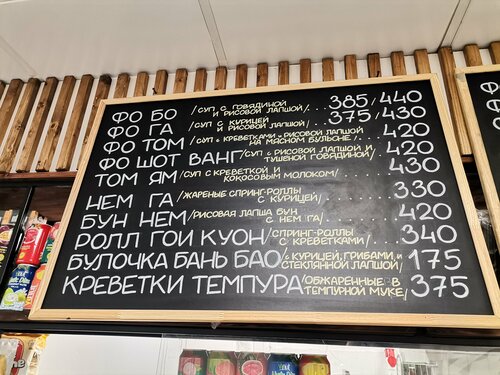 ФО БО /СУП С ГОВЯДИНОЙ
И РИСОВОЙ ЛАПШОЙ/ . . . 385/440
ФО ГА /СУП С КУРИЦЕЙ
И РИСОВОЙ ЛАПШОЙ/ . . . 375/430
ФО ТОМ /СУП С КРЕВЕТКАМИ И РИСОВОЙ ЛАПШОЙ
НА МЯСНОМ БУЛЬОНЕ/ . . . 420
ФО ШОТ ВАНГ /СУП С РИСОВОЙ ЛАПШОЙ И
ТУШЕНОЙ ГОВЯДИНОЙ/ . . 420
ТОМ ЯМ /СУП С КРЕВЕТКОЙ И
КОКОСОВЫМ МОЛОКОМ/ . . . 430
НЕМ ГА /ЖАРЕНЫЕ СПРИНГ-РОЛЛЫ
С КУРИЦЕЙ/ . . . 330
БУН НЕМ /РИСОВАЯ ЛАПША БУН
С НЕМ ГА/ . . . 420
РОЛЛ ГОИ КУОН /СПРИНГ-РОЛЛЫ
С КРЕВЕТКАМИ/ . . . 340
БУЛОЧКА БАНЬ БАО /С КУРИЦЕЙ, ГРИБАМИ, И
СТЕКЛЯННОЙ ЛАПШОЙ/ 175
КРЕВЕТКИ ТЕМПУРА /ОБЖАРЕННЫЕ В
ТЕМПУРНОЙ МУКЕ/ 375